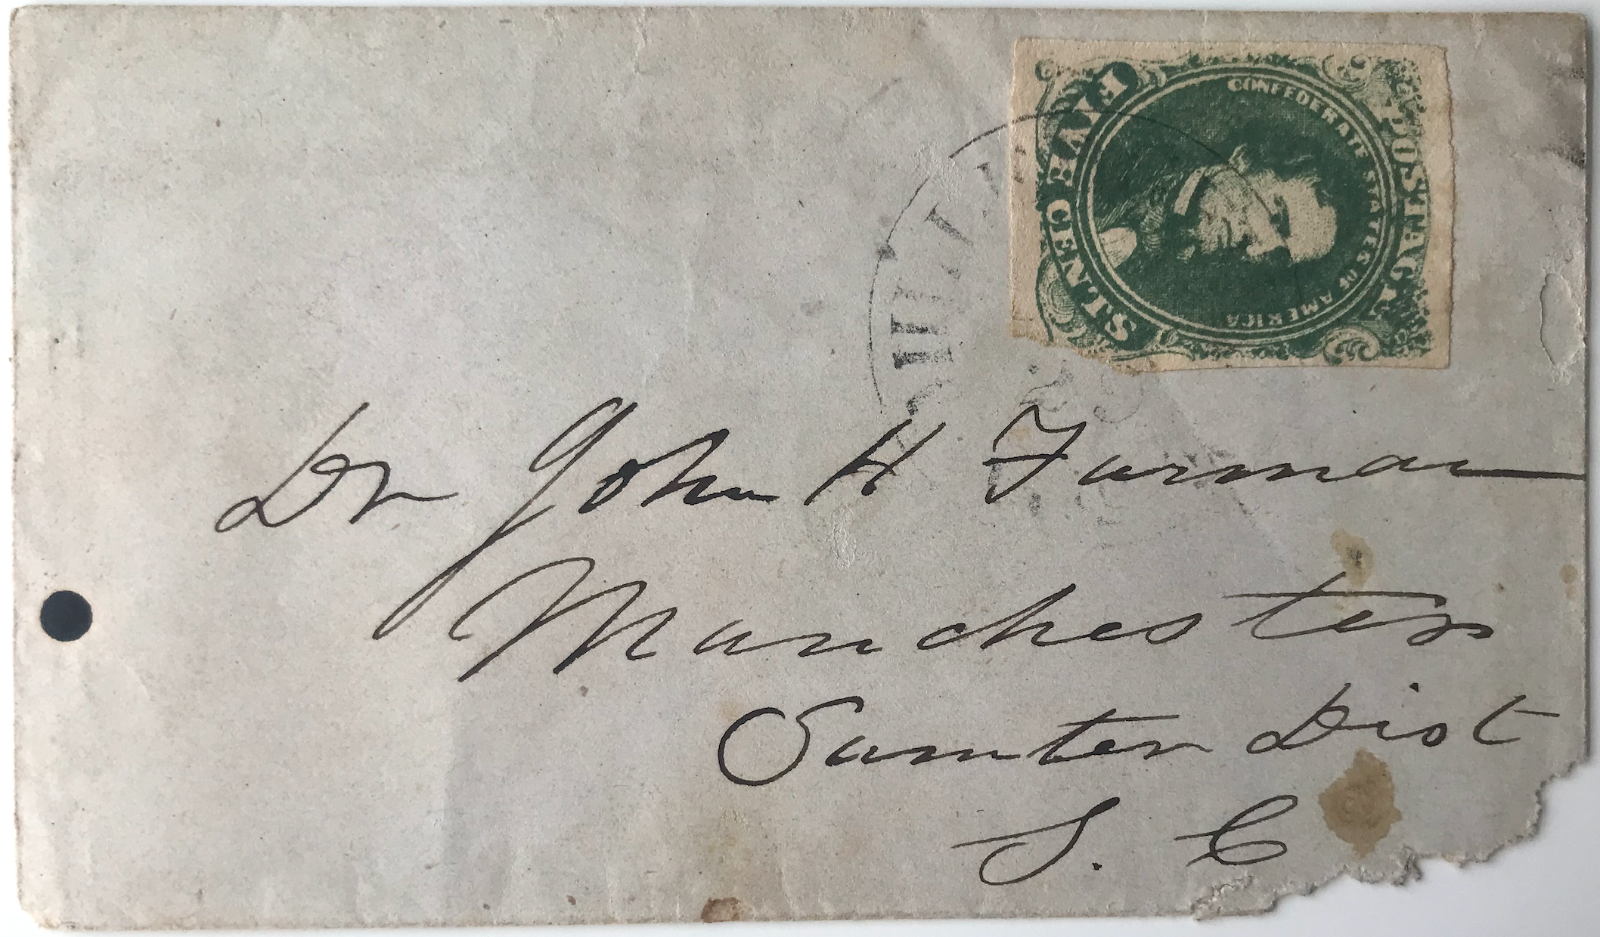 POSTAGE
CONFEDERATE STATES OF AMERICA
FIVE CENTS
Dr John H Furman
Manchester
Sumter Dist
S. C